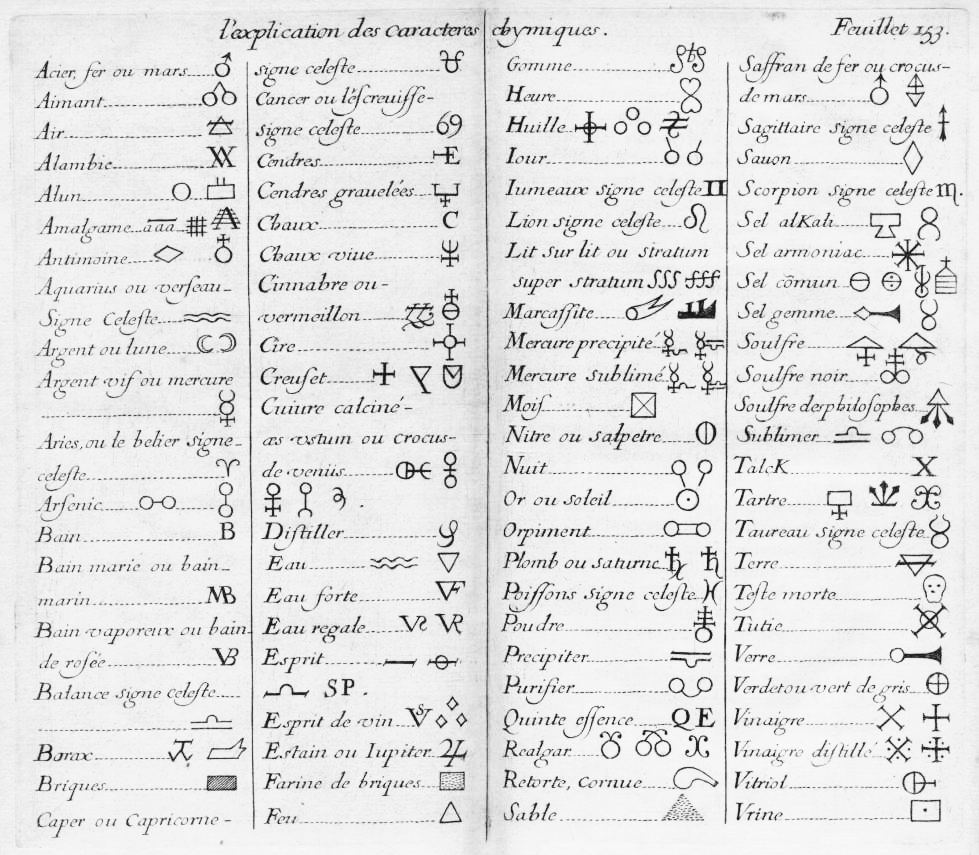 l'explication des Caracteres chymiques. Feuillet 153.
Acier, fer ou mars
Aimant
Air
Alambic
Alun
Amalgame aaa
Antimoine
Aquarius ou verseau
Signe Celeste
Argent ou lune
Argent vif ou mercure
Aries, ou le belier signe
celeste
Arsenic
Bain B
Bain marie ou bain
marin MB
Bain vaporeux ou bain
de rosée VB
Balance signe celeste
Borax
Briques
Caper ou Capricorne
signe celeste
Cancer ou l'escreuisse
signe celeste 69
Cendres E
Cendres grauelées
Chaux C
Chaux viue
Cinnabre ou
vermeillon
Cire
Creuset
Cuiure calciné
æs ustum ou crocus
de venus
Distiller
Eau
Eau forte VF
Eau regale VR
Esprit
SP.
Esprit de vin VS
Estain ou Iupiter
Farine de briques
Feu
Gomme
Heure
Huille
Iour
Iumeaux signe celeste II
Lion signe celeste
Lit sur lit ou stratum
super stratum SSS
Marcassite
Mercure precipité
Mercure sublimé
Mois
Nitre ou salpetre
Nuit
Or ou soleil
Orpiment
Plomb ou saturne
Poissons signe celeste
Poudre
Precipiter
Purifier
Quinte essence Q E
Realgar
Retorte, cornue
Sable
Saffran de fer ou crocus
de mars
Sagittaire signe celeste
Sauon
Scorpion signe celeste
Sel alKali
Sel armoniac
Sel cõmun
Sel gemme
Soulfre
Soulfre noir
Soulfre des philosophes
Sublimer
TalcK X
Tartre
Taureau signe celeste
Terre
Teste morte
Tutie
Verre
Verdet ou vert de gris
Vinaigre
Vinaigre distillé
Vitriol
Vrine